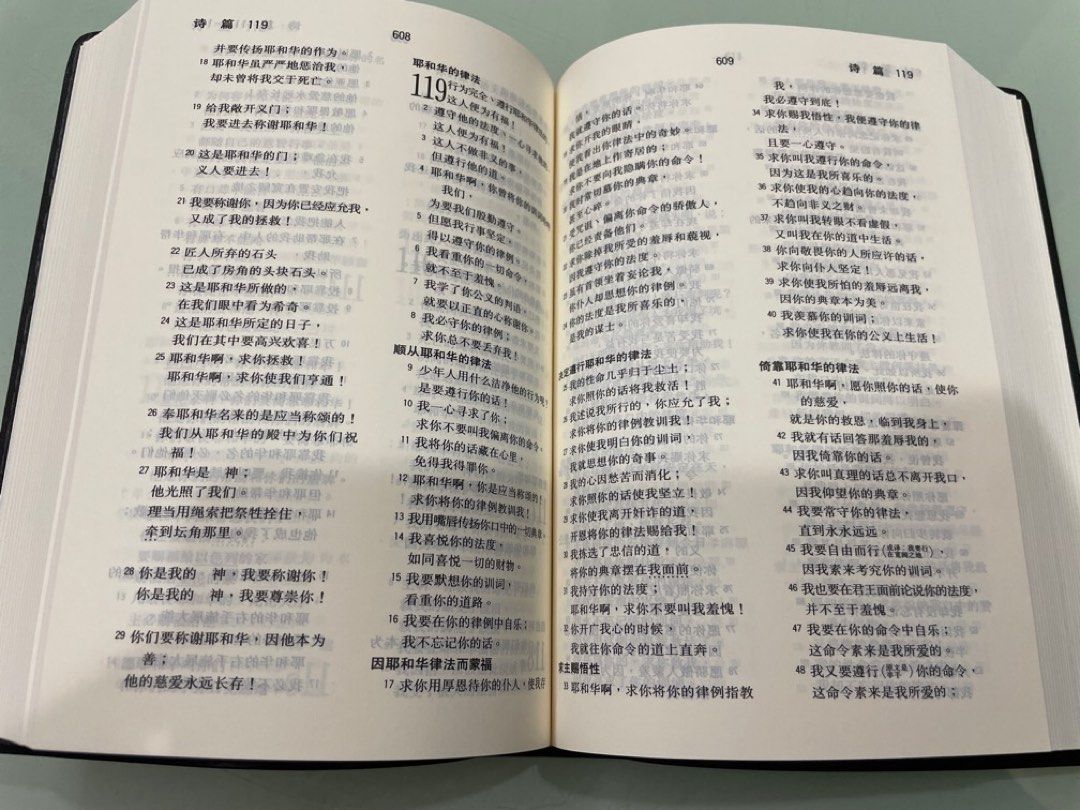 诗 篇 119
608
并要传扬耶和华的作为。
18 耶和华虽严严地惩治我，
却未曾将我交于死亡。
19 给我敞开义门；
我要进去称谢耶和华！
20 这是耶和华的门；
义人要进去！
21 我要称谢你，因为你已经应允我，
又成了我的拯救！
22 匠人所弃的石头
已成了房角的头块石头。
23 这是耶和华所做的，
在我们眼中看为希奇。
24 这是耶和华所定的日子，
我们在其中要高兴欢喜！
25 耶和华啊，求你拯救！
耶和华啊，求你使我们亨通！
26 奉耶和华名来的是应当称颂的！
我们从耶和华的殿中为你们祝
福！
27 耶和华是　神；
他光照了我们。
理当用绳索把祭牲拴住，
牵到坛角那里。
28 你是我的　神，我要称谢你！
你是我的　神，我要尊崇你！
29 你们要称谢耶和华，因他本为
善；
他的慈爱永远长存！
耶和华的律法
119 行为完全、遵行耶和华律法的
这人便为有福！
2 遵守他的法度、一心寻求他的
这人便为有福！
3 这人不做非义的事，
但遵行他的道。
4 耶和华啊，你曾将你的训词吩咐
我们，
为要我们殷勤遵守。
5 但愿我行事坚定，
得以遵守你的律例。
6 我看重你的一切命令，
就不至于羞愧。
7 我学了你公义的判语，
就要以正直的心称谢你。
8 我必守你的律例；
求你总不要丢弃我！
顺从耶和华的律法
9 少年人用什么洁净他的行为呢？
是要遵行你的话！
10 我一心寻求了你；
求你不要叫我偏离你的命令。
11 我将你的话藏在心里，
免得我得罪你。
12 耶和华啊，你是应当称颂的！
求你将你的律例教训我！
13 我用嘴唇传扬你口中的一切典章。
14 我喜悦你的法度，
如同喜悦一切的财物。
15 我要默想你的训词，
看重你的道路。
16 我要在你的律例中自乐；
我不忘记你的话。
因耶和华律法而蒙福
17 求你用厚恩待你的仆人，使我存
609
诗 篇 119
活，
我就遵守你的话。
求你开我的眼睛，
使我看出你律法中的奇妙。
我是在地上作寄居的；
求你不要向我隐瞒你的命令！
我时常切慕你的典章，
甚至心碎。
受咒诅、偏离你命令的骄傲人，
你已经责备他们。
求你除掉我所受的羞辱和藐视，
因我遵守你的法度。
虽有首领坐着妄论我，
你仆人却思想你的律例。
你的法度是我所喜乐的，
是我的谋士。
决定遵行耶和华的律法
25 我的性命几乎归于尘土；
求你照你的话将我救活！
我述说我所行的，你应允了我；
求你将你的律例教训我！
求你使我明白你的训词，
我就思想你的奇事。
我的心因愁苦而消化；
求你照你的话使我坚立！
求你使我离开奸诈的道，
开恩将你的律法赐给我！
我拣选了忠信的道，
将你的典章摆在我面前。
我持守你的法度；
耶和华啊，求你不要叫我羞愧！
你开广我心的时候，
我就往你命令的道上直奔。
求主赐悟性
33 耶和华啊，求你将你的律例指教
我，
我必遵守到底！
34 求你赐我悟性，我便遵守你的律
法，
且要一心遵守。
35 求你叫我遵行你的命令，
因为这是我所喜乐的。
36 求你使我的心趋向你的法度，
不趋向非义之财。
37 求你叫我转眼不看虚假，
又叫我在你的道中生活。
38 你向敬畏你的人所应许的话，
求你向仆人坚定！
39 求你使我所怕的羞辱远离我，
因你的典章本为美。
40 我羡慕你的训词；
求你使我在你的公义上生活！
倚靠耶和华的律法
41 耶和华啊，愿你照你的话，使你
的慈爱，
就是你的救恩，临到我身上，
42 我就有话回答那羞辱我的，
因我倚靠你的话。
43 求你叫真理的话总不离开我口，
因我仰望你的典章。
44 我要常守你的律法，
直到永永远远。
45 我要自由而行（或译：我要行在宽阔之地），
因我素来考究你的训词。
46 我也要在君王面前论说你的法度，
并不至于羞愧。
47 我要在你的命令中自乐；
这命令素来是我所爱的。
48 我又要遵行（原文是举手）你的命令，
这命令素来是我所爱的；